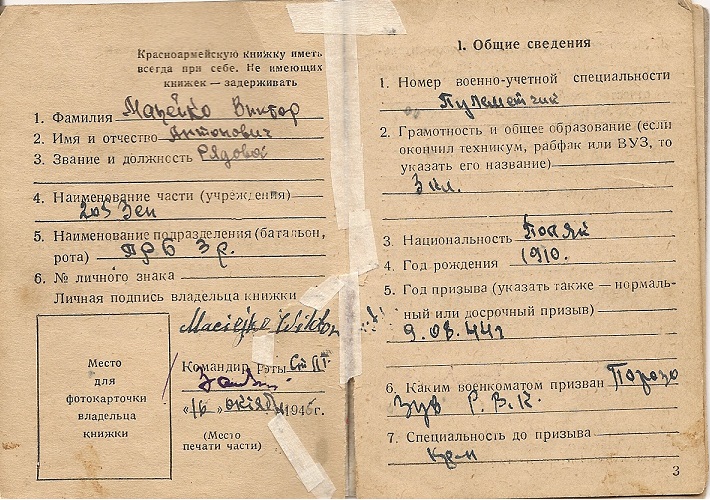 Красноармейскую книжку иметь
всегда при себе. Не имеющих
книжек — задерживать
1. Фамилия Мацейко Виктор
2. Имя и отчество Антонович
3. Звание и должность Рядовой
4. Наименование части (учреждения)
203 Зсп
5. Наименование подразделения (батальон,
рота)
6. № личного знака
Личная подпись владельца книжки
Maciejko Wiktor
Командир Роты
„16" октября 1945г.
(Место
печати части)
Место
для
фотокарточки
владельца
книжки
1. Общие сведения
1. Номер военно-учетной специальности
Пулеметчик
2. Грамотность и общее образование (если
окончил техникум, рабфак или ВУЗ, то
указать его название)
3 кл.
3. Национальность Поляк
4. Год рождения 1910.
5. Год призыва (указать также — нормаль-
ный или досрочный призыв)
9.08.44г
6. Каким военкоматом призван Порозо
Р.В.К.
7. Специальность до призыва
3